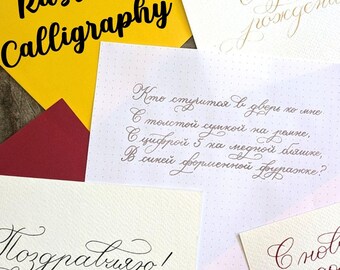 Calligraphy
рожден
Кто стучится в дверь ко мне
С толстой сумкой на ремне,
С цифрой 5 на медной бляшке,
В синей форменной фуражке?
Поздравляю!
С нов